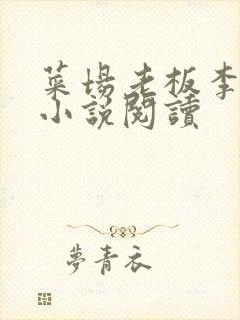 菜場老板李
小說閱讀
夢青衣